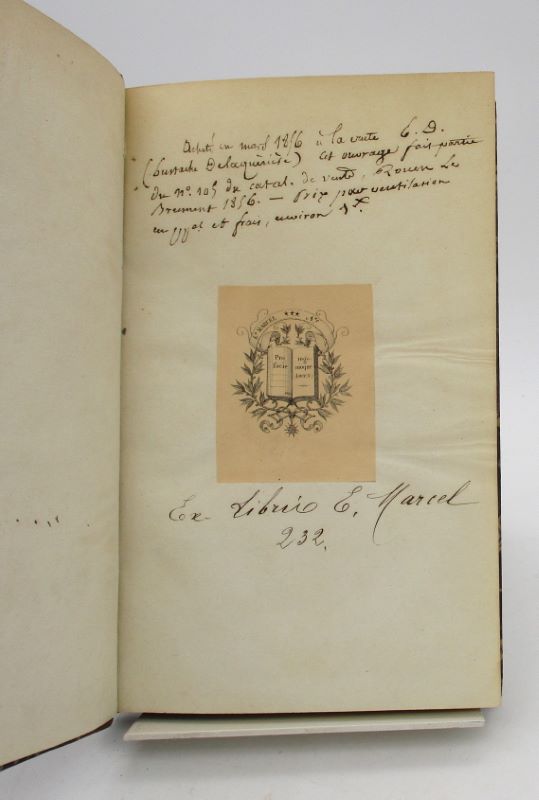 Acheté en mars 1856 à la vente E. D.
(Eustache Delaquérière) Cet ouvrage fait partie
du n°. 105 du catal. de vente, Rouen Le
Brument 1856. — Prix pour ventilation
et frais, environ
E. MARCEL *** N°
Pro
facie
Ex Libris E. Marcel
232.